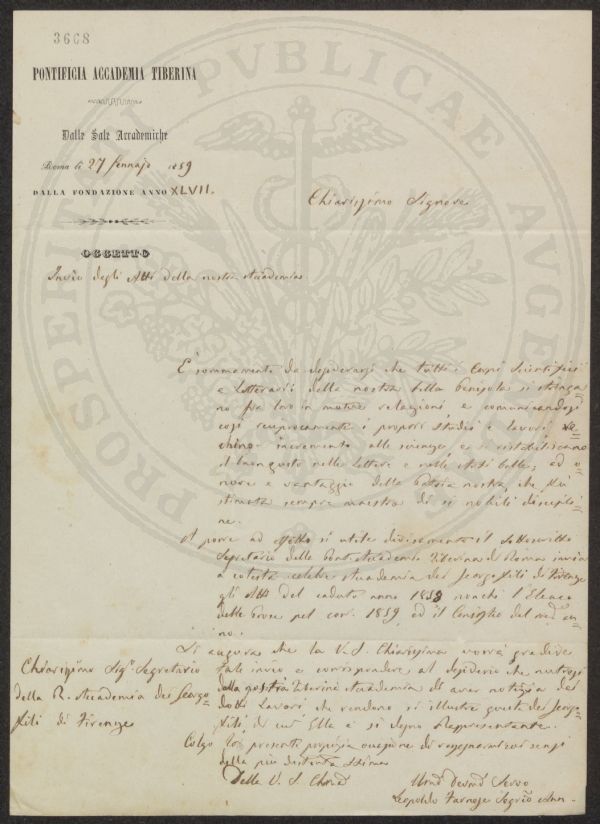 3668
PONTIFICIA ACCADEMIA TIBERINA
Dalle Sale Accademiche
Roma li 27 Gennajo 1859
DALLA FONDAZIONE ANNO XLVII.
Chiarissimo Signore
OGGETTO
Invio degli Atti della nostra Accademia
È sommamente da desiderarsi che tutti i Corpi Scientifici
e Letterarii della nostra bella Penisola si stringa=
no fra loro in mutue relazioni e comunicandosi
così reciprocamente i proprii studii e lavori re=
chino incremento alle scienze, e si ristabiliscano
il buon gusto nelle lettere e nelle Arti belle, ad o=
nore e vantaggio della Patria nostra che fu
stimata sempre maestra di sì nobili discipli=
ne.
A porre ad effetto sì utile divisamento il Sottoscritto
Segretario della Pont. Accademia Tiberina di Roma invia
a cotesta celebre Accademia dei Georgofili di Firenze
gli Atti del caduto anno 1858 nonchè l'Elenco
delle Prose pel corr. 1859, ed il Consiglio del med. an=
no.
Si augura che la V. S. Chiarissima vorrà gradire
tale invio e corrispondere al desiderio che nutresi
dalla nostra Tiberina Accademia di aver notizia dei
dotti Lavori che rendono sì illustre questa dei Georgo=
fili, di cui Ella è sì degno Rappresentante.
Colgo la presente propizia occasione di rassegnarmi coi sensi
della più distinta stima
Della V. S. Chma
Chiarissimo Sigr. Segretario
della R. Accademia dei Georgo=
fili di Firenze
Umo Devmo Servo
Leopoldo Farnese Segrio Ann.
PROSPERITATI PUBLICAE AUGENDAE